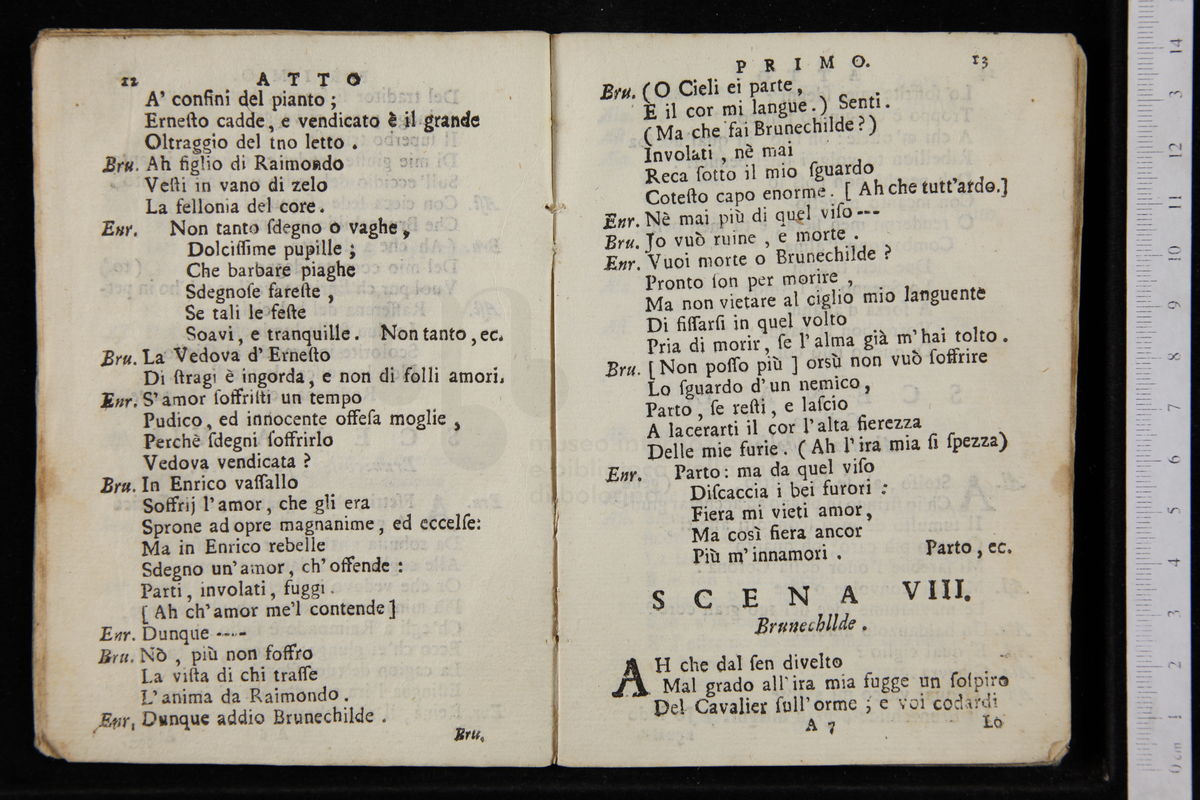 12 ATTO
A' confini del pianto ;
Erneſto cadde, e vendicato è il grande
Oltraggio del tno letto .
Bru. Ah figlio di Raimondo
Veſti in vano di zelo
La fellonia del core.
Enr. Non tanto ſdegno o vaghe,
Dolciſſime pupille ;
Che barbare piaghe
Sdegnoſe fareſte ,
Se tali le feſte
Soavi, e tranquille. Non tanto, ec.
Bru. La Vedova d' Erneſto
Di ſtragi è ingorda, e non di folli amori.
Enr. S' amor ſoffriſti un tempo
Pudico, ed innocente offeſa moglie ,
Perchè ſdegni ſoffrirlo
Vedova vendicata ?
Bru. In Enrico vaſſallo
Soffrij l' amor, che gli era
Sprone ad opre magnanime, ed eccelſe:
Ma in Enrico rebelle
Sdegno un' amor, ch' offende :
Parti, involati, fuggi.
[ Ah ch' amor me'l contende ]
Enr. Dunque ----
Bru. Nò , più non ſoffro
La viſta di chi traſſe
L' anima da Raimondo.
Enr, Dunque addio Brunechilde .
Bru.
PRIMO. 13
Bru. (O Cieli ei parte,
E il cor mi langue.) Senti.
(Ma che fai Brunechilde?)
Involati, nè mai
Reca ſotto il mio ſguardo
Coteſto capo enorme. [ Ah che tutt'ardo.]
Enr. Nè mai più di quel viſo---
Bru. Jo vuò ruine , e morte .
Enr. Vuoi morte o Brunechilde ?
Pronto ſon per morire ,
Ma non vietare al ciglio mio languente
Di fiſſarſi in quel volto
Pria di morir, ſe l' alma già m' hai tolto.
Bru. [ Non poſſo più ] orsù non vuò ſoffrire
Lo ſguardo d' un nemico,
Parto, ſe reſti, e laſcio
A lacerarti il cor l' alta fierezza
Delle mie furie. (Ah l' ira mia ſi ſpezza)
Enr. Parto: ma da quel viſo
Diſcaccia i bei furori :
Fiera mi vieti amor,
Ma così fiera ancor
Più m' innamori . Parto, ec.
SCENA VIII.
Brunechllde.
AH che dal ſen divelto
Mal grado all' ira mia fugge un ſoſpiro
Del Cavalier ſull' orme ; e voi codardi
A 7 Lo